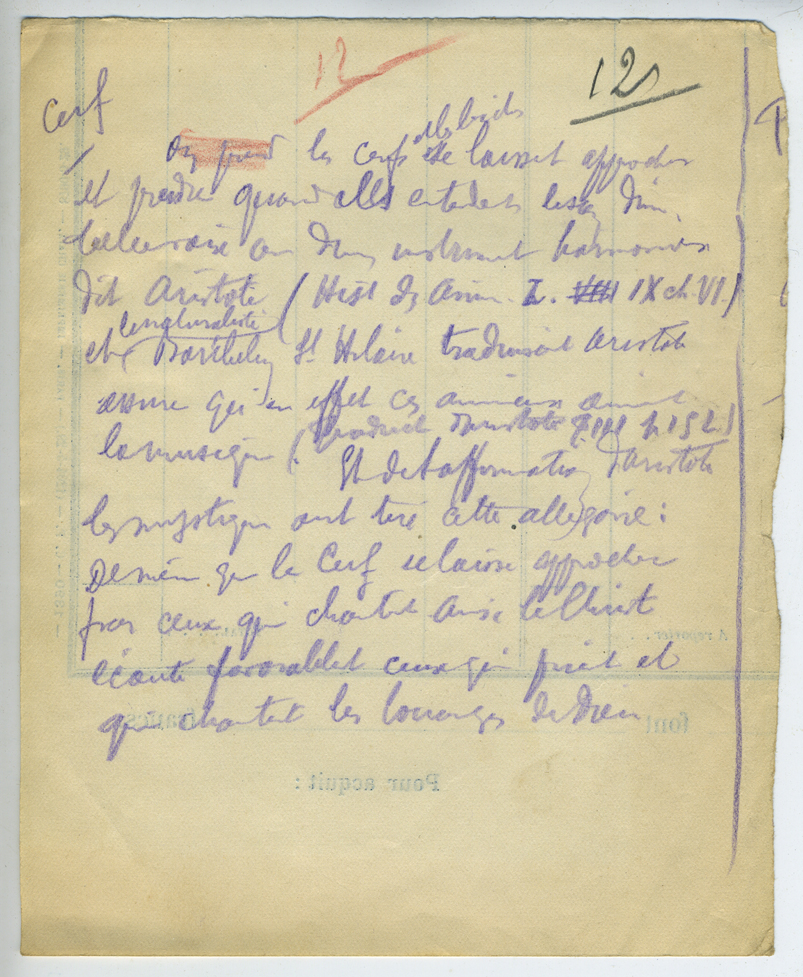 12
12
Cerf
les cerfs et les biches se laissent approcher
et prendre quand elles entendent le son d'une
belle voix ou d'un instrument harmonieux
dit Aristote (Hist des Anim. L. IX ch. VI.)
et Barthelemy St Hilaire traduisant Aristote
assure qu'en effet ces animaux aiment
la musique (traduct d'Aristote
Et de l'affirmation d'Aristote
les mystiques ont tiré cette allégorie :
De même que le Cerf se laisse approcher
par ceux qui chantent ainsi le Christ
écoute favorablet ceux qui prient et
qui chantent les louanges de Dieu
A reporter
font
Pour acquit :